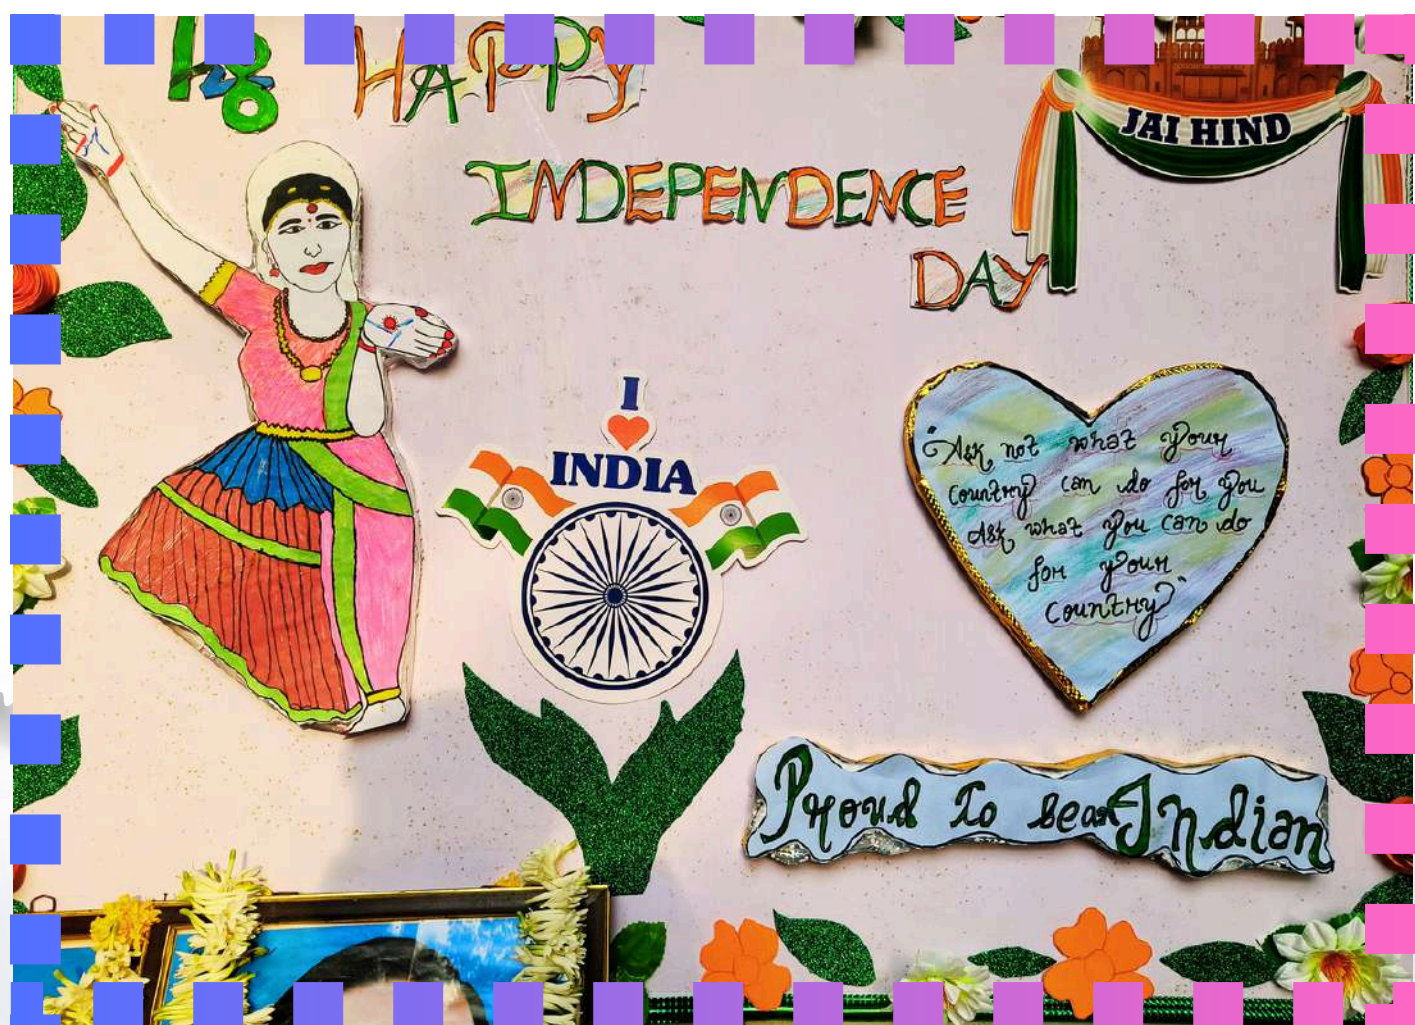 HAPPY
INDEPENDENCE
DAY
JAI HIND
I
INDIA
"Ask not what your
country can do for you
Ask what you can do
for your
country"
Proud to be an Indian